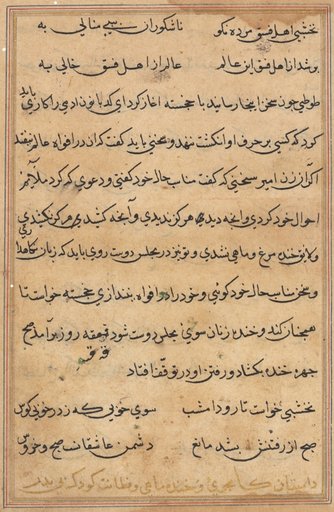 نخشبی اهل فسق مرده نکو ناشکوران منالی به
پر شد از اهل فسق این عالم عالم از اهل فسق خالی به
طوطی چون سخن اینجا رسانید با خجسته اغاز کرد ای کدبانو ادمی را کاری باید
کرد که کسی بر حرف او انکشت ننهد و سخنی باید کفت که ان در افواه عالم نیفتد
اکر از زن امیر سخنی که کفت مناسب حال خود کفتی و دعوی که کرد ملایم
احوال خود کردی و انچه دیدی هرکز ندیدی و انچه کشیدی هرکز نکشیدی
ولایق خنده مرغ و ماهی نشدی و تو نیز در مجلس دوست روی باید که زبان نگاهداری
و سخن مناسب حال خود کوئی و خود را در افواه نیندازی خجسته خواست تا
همچنان کند و خنده زنان سوی مجلس دوست شود قهقهه روز برامد صبح
چهره خنده بکشاد و رفتن او در توقف افتاد
نخشبی خواست تا رود امشب سوی خوبی که زد ز خوبی کوس
صبح از رفتنش بشد مانع دشمن عاشقانست صبح و خروس
داستان و خنده ماهی و کودک